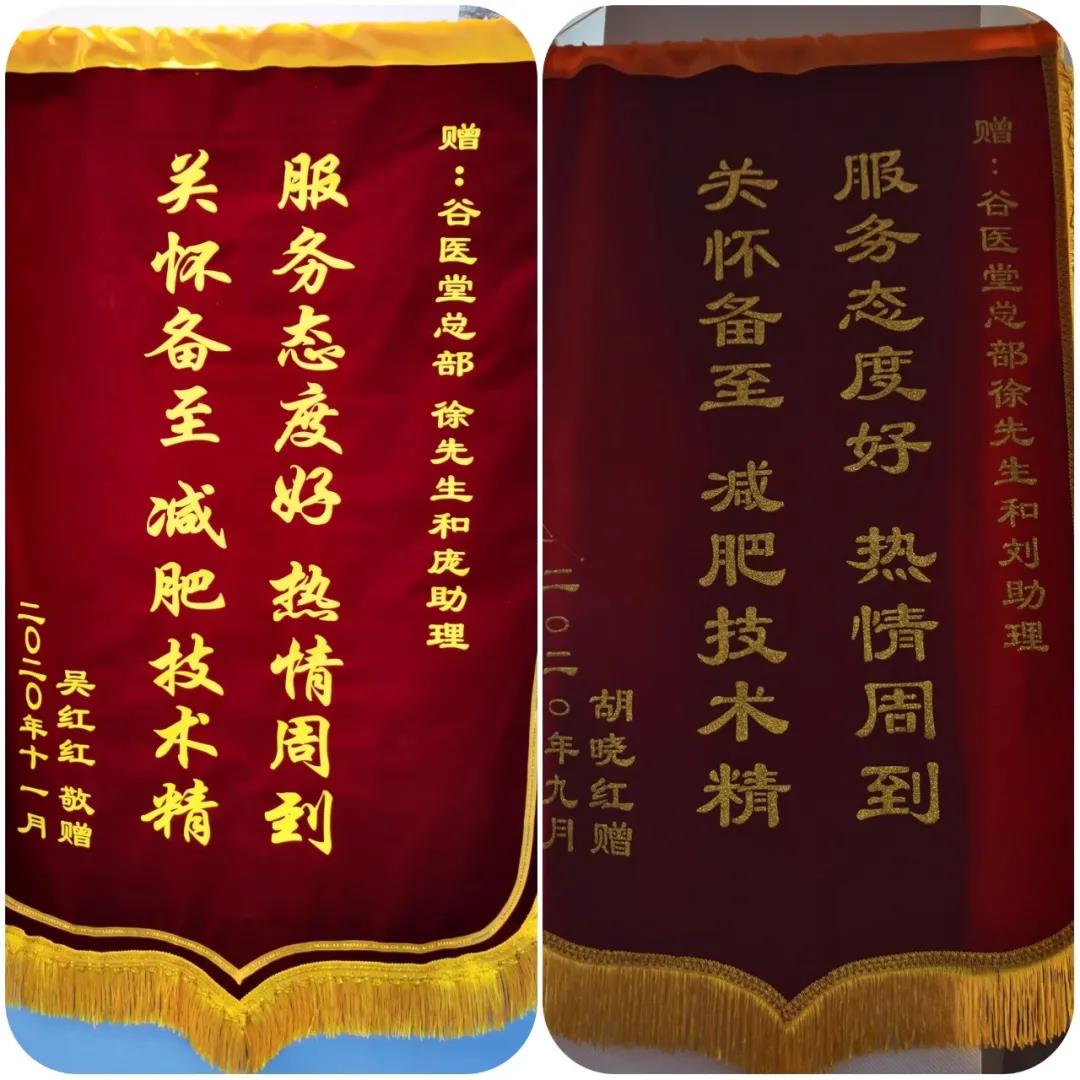 赠：谷医堂总部 徐先生和庞助理
服务态度好 热情周到
关怀备至 减肥技术精
吴红红 敬赠
二〇二〇年十一月
赠：谷医堂总部徐先生和刘助理
服务态度好 热情周到
关怀备至 减肥技术精
胡晓红赠
二〇二〇年九月